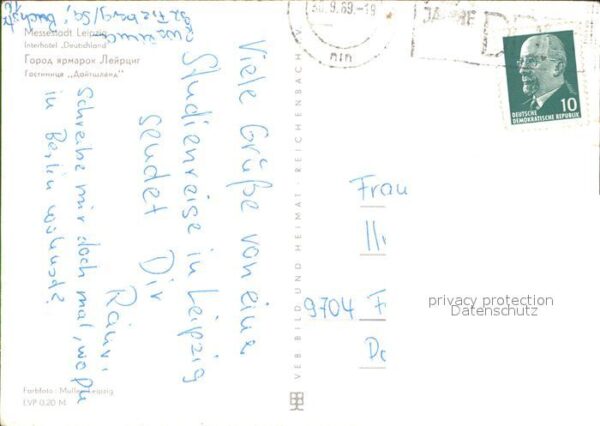 Messestadt Leipzig
Interhotel „Deutschland"
Город ярмарок Лейпциг
Гостиница „Дойтшланд"
Viele Grüße von einer
Studienreise in Leipzig
sendet Dir
Schreibe mir doch mal, wo Du
in Berlin wohnst?
VEB BILD UND HEIMAT · REICHENBACH I. V
30.9.69.-19
JAHRE
DDR
10
DEUTSCHE
DEMOKRATISCHE REPUBLIK
Frau
9704 F
privacy protection
Datenschutz
Farbfoto: Müller, Leipzig
EVP 0,20 M